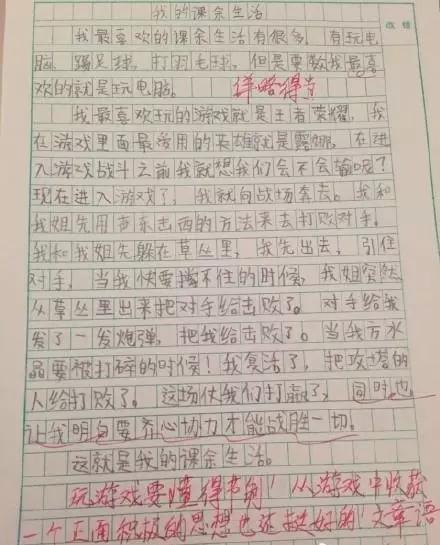 我的课余生活
我最喜欢的课余生活有很多，有玩电
脑，踢足球，打羽毛球，但是要数我最喜
欢的就是玩电脑。
详略得当
我最喜欢玩的游戏就是王者荣耀，我
在游戏里面最爱用的英雄就是露娜，在进
入游戏战斗之前我就想我们会不会输呢？
现在进入游戏了，我就向战场奔去。我和
我姐先用声东击西的方法来去打败对手。
我和我姐先躲在草丛里，我先出去，引住
对手，当我快要挡不住的时候，我姐突然
从草丛里出来把对手给击败了。对手给我
发了一发炮弹，把我给击败了。当我方水
晶要被打碎的时候！我复活了，把攻塔的
人给打败了。这场仗我们打赢了，同时也
让我明白要齐心协力才能战胜一切。
这就是我的课余生活。
玩游戏要懂得节制！从游戏中收获
一个正面积极的思想也还挺好的！文章语